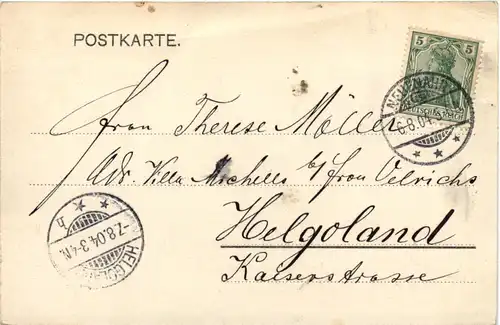 POSTKARTE.
5 5
6.8.04
Frau Therese Möller
Adr. Villa Michells b/ Frau Oelrichs
Helgoland
Kaiserstrasse
b
7.8.04.3-4N.
HELGOLAND